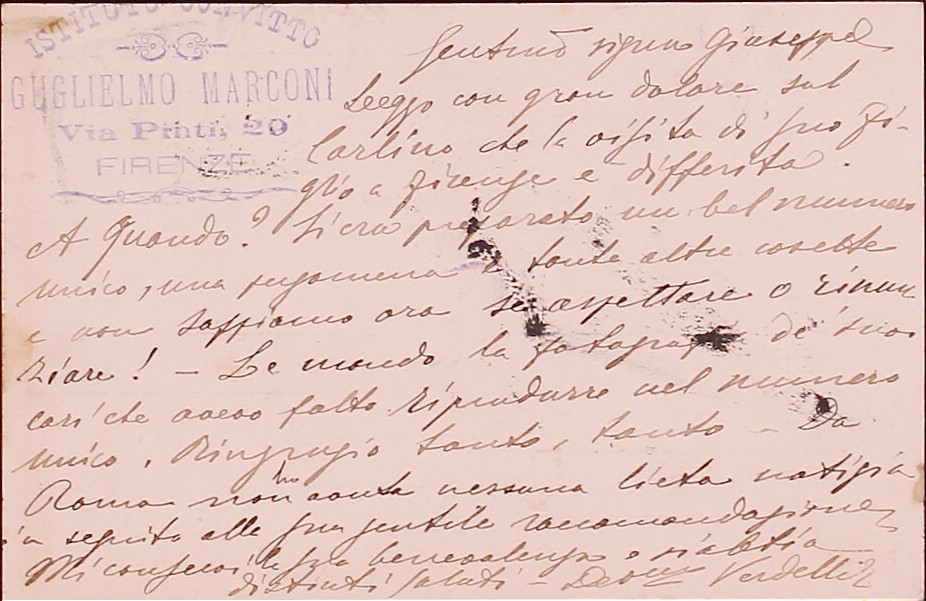 ISTITUTO CONVITTO
GUGLIELMO MARCONI
Via Pinti, 20
FIRENZE
Gentmo signor Giuseppe
Leggo con gran dolore sul
Carlino che la visita di suo fi-
glio a Firenze è differita.
A quando? Si era preparato un bel numero
unico, una pergamena e tante altre cosette
e non sappiamo ora se aspettare o rinun
ziare! - Le mando la fotografia de' suoi
cari che avevo fatto riprodurre nel numero
unico. Ringrazio tanto, tanto - Da
Roma non ho avuta nessuna lieta notizia
in seguito alle sua gentile raccomandazione
Mi conservi la sua benevolenza e si abbia
distinti saluti - Devmo Verdelli